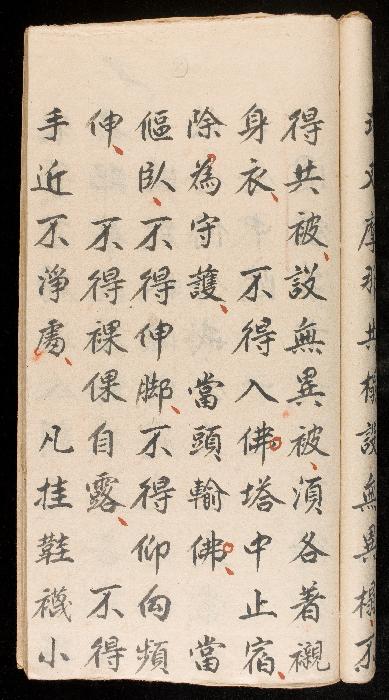 文摩那共榻設無異榻不
得共被設無異被須各著襯
身衣 不得入佛塔中止宿
除為守護 當頭輸佛 當
傴臥不得伸脚不得仰向頻
伸 不得裸倮自露 不得
手近不淨處 凡挂鞋襪小